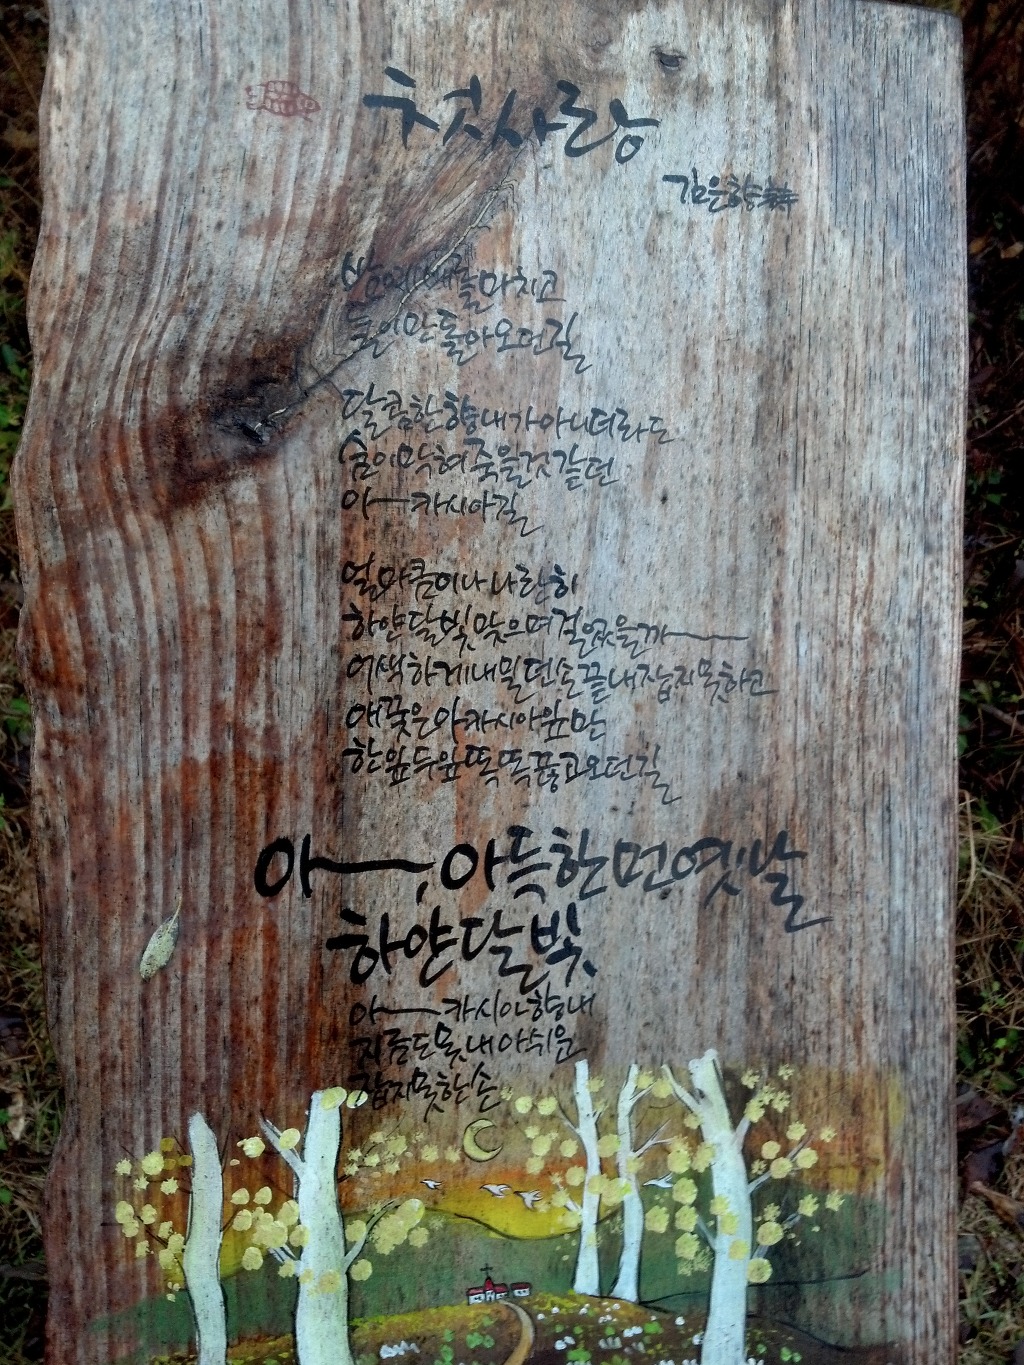 첫사랑
김은향 詩
밤예배를 마치고
둘이만 돌아오던 길
달콤한 향내가 아니더라도
숨이 막혀 죽을것 같던
아~카시아 길
얼마큼이나 나란히
하얀 달빛 맞으며 걸었을까~
어색하게 내밀던 손 끝내 잡지 못하고
애꿎은 아카시아 잎만
한잎 두잎 똑똑 뜯고 오던 길
아~, 아득한 먼 옛날
하얀 달빛,
아~카시아 향내
지금도 못내 아쉬운
잡지 못한 손